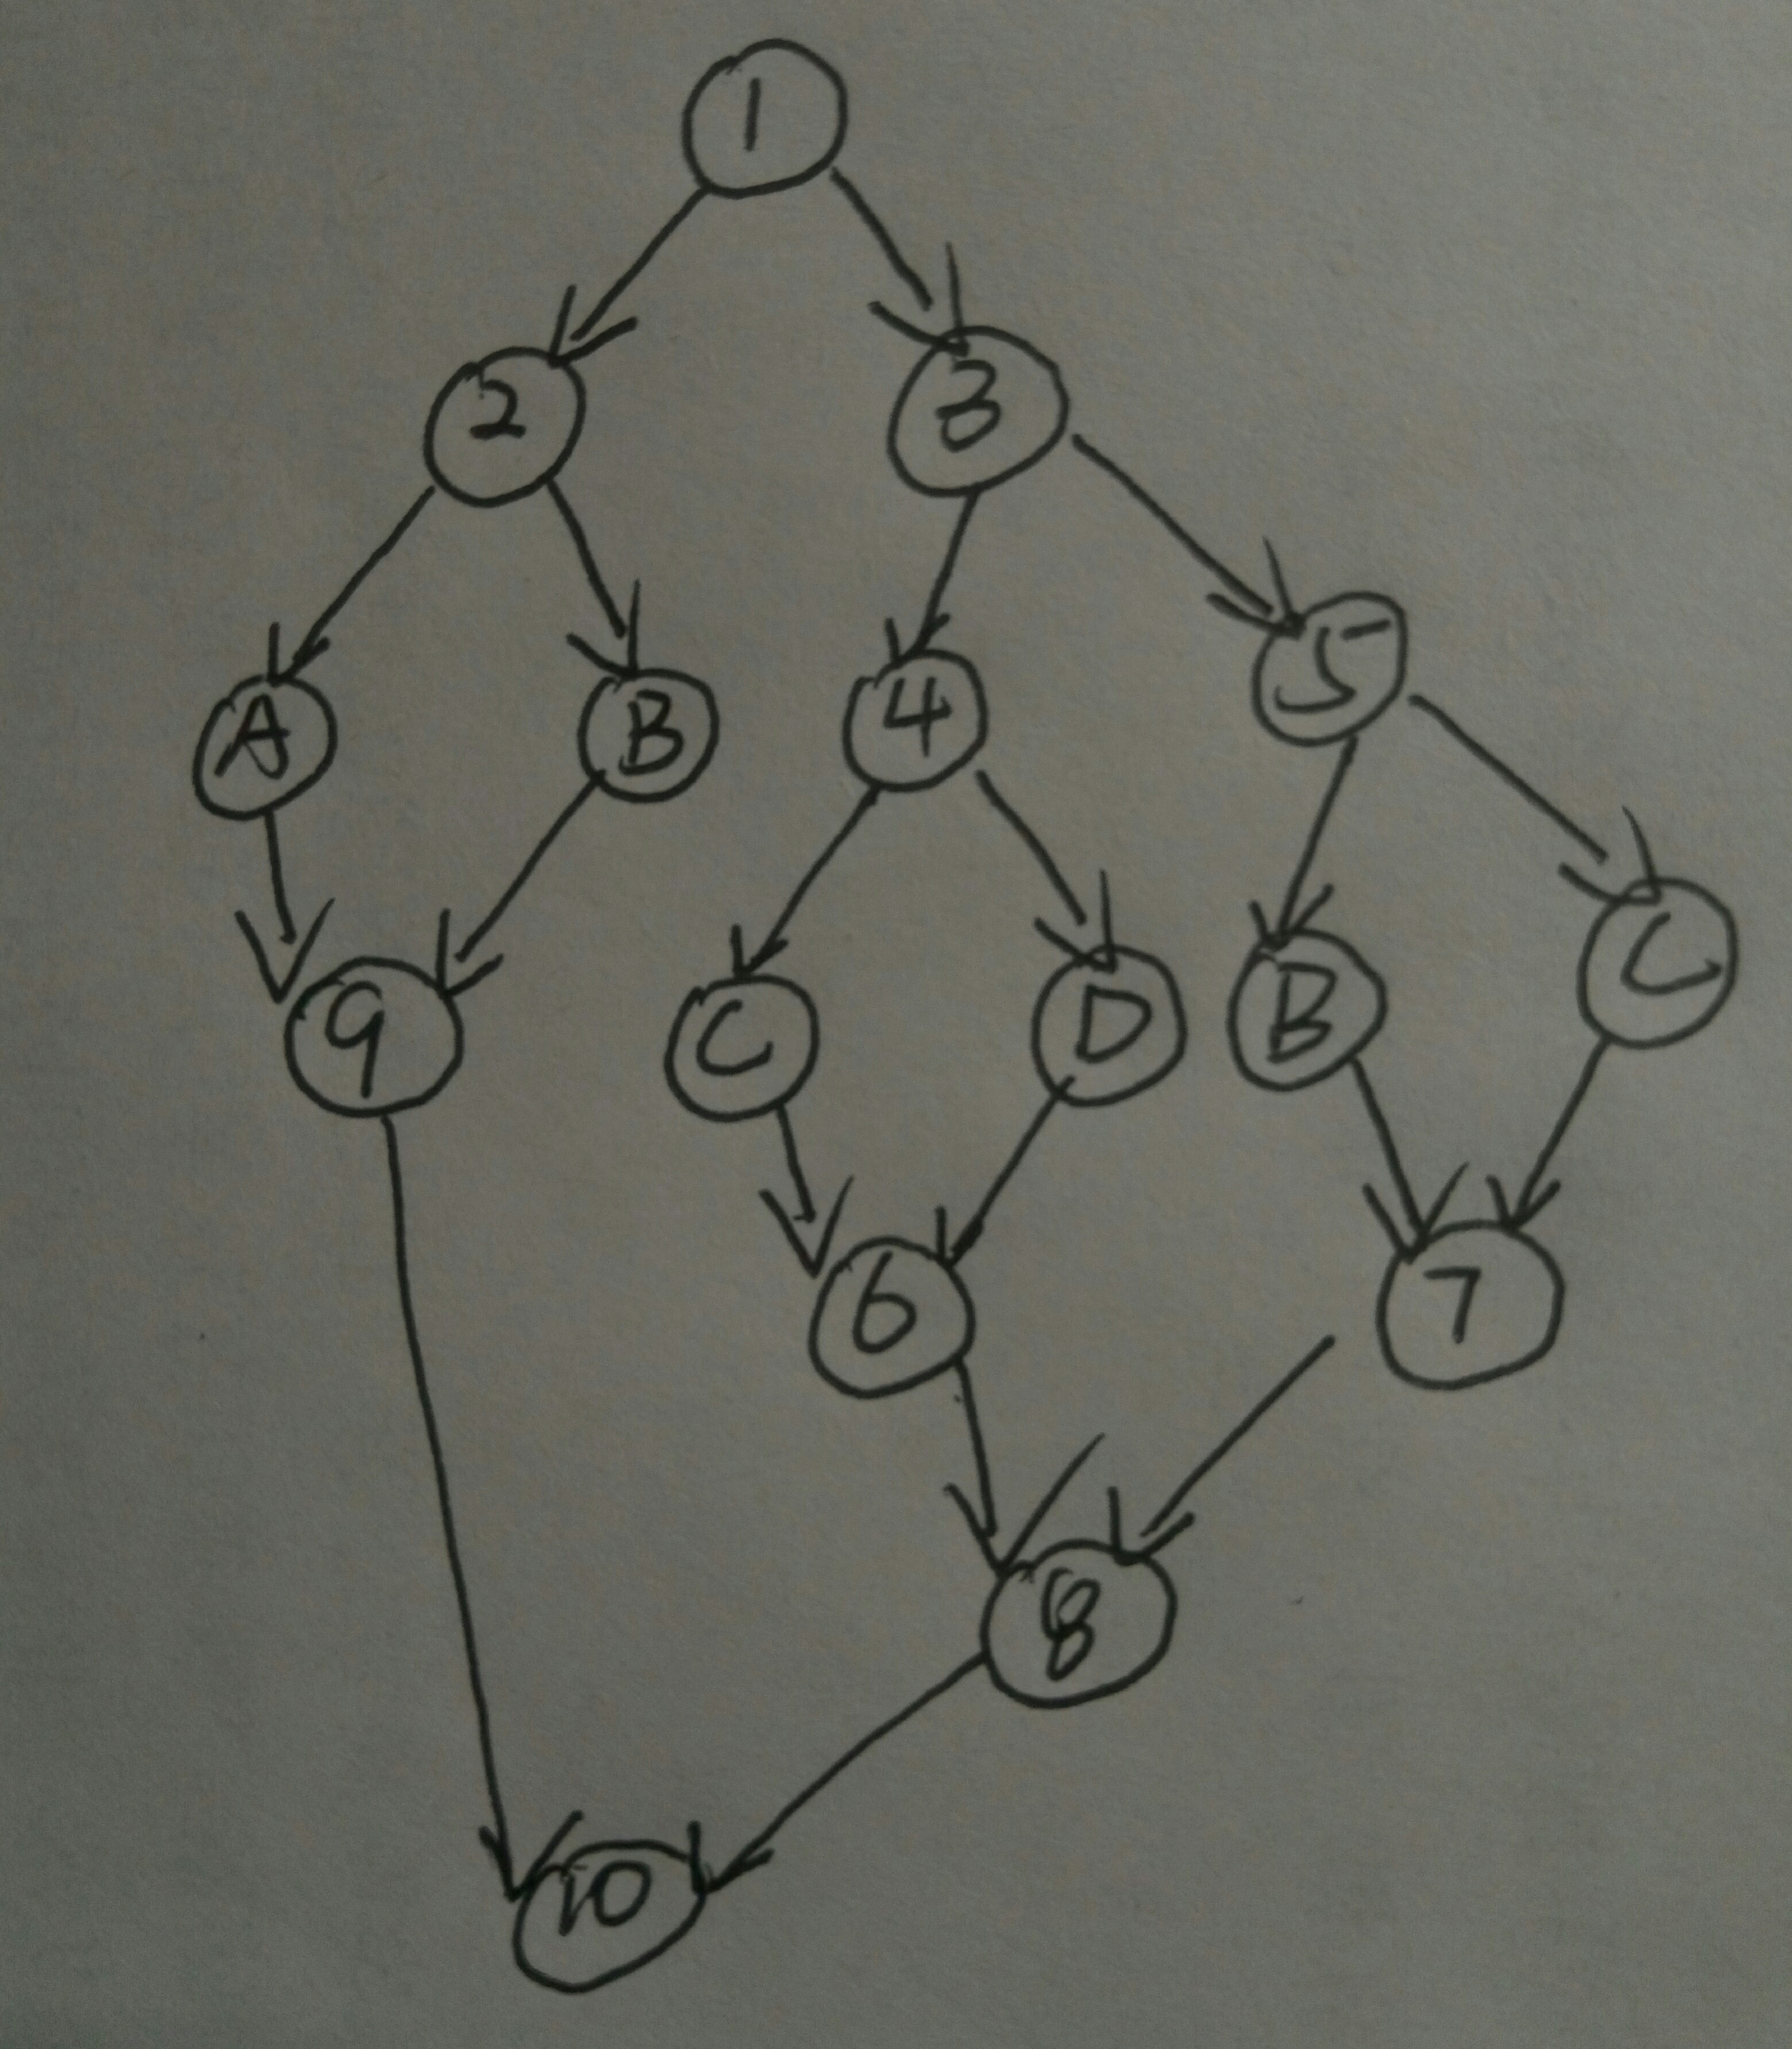 1
2 3
A B 4 5
9 C D B C
6 7
8
10